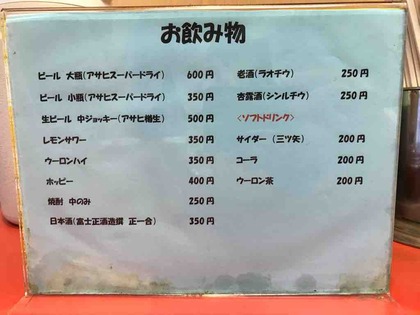 お飲み物
ビール 大瓶(アサヒスーパードライ) 600円
ビール 小瓶(アサヒスーパードライ) 350円
生ビール 中ジョッキー(アサヒ樽生) 500円
レモンサワー 350円
ウーロンハイ 350円
ホッピー 400円
焼酎 中のみ 250円
日本酒(富士正酒造撰 正一合) 350円
老酒(ラオチウ) 250円
杏露酒(シンルチウ) 250円
<ソフトドリンク>
サイダー (三ツ矢) 200円
コーラ 200円
ウーロン茶 200円